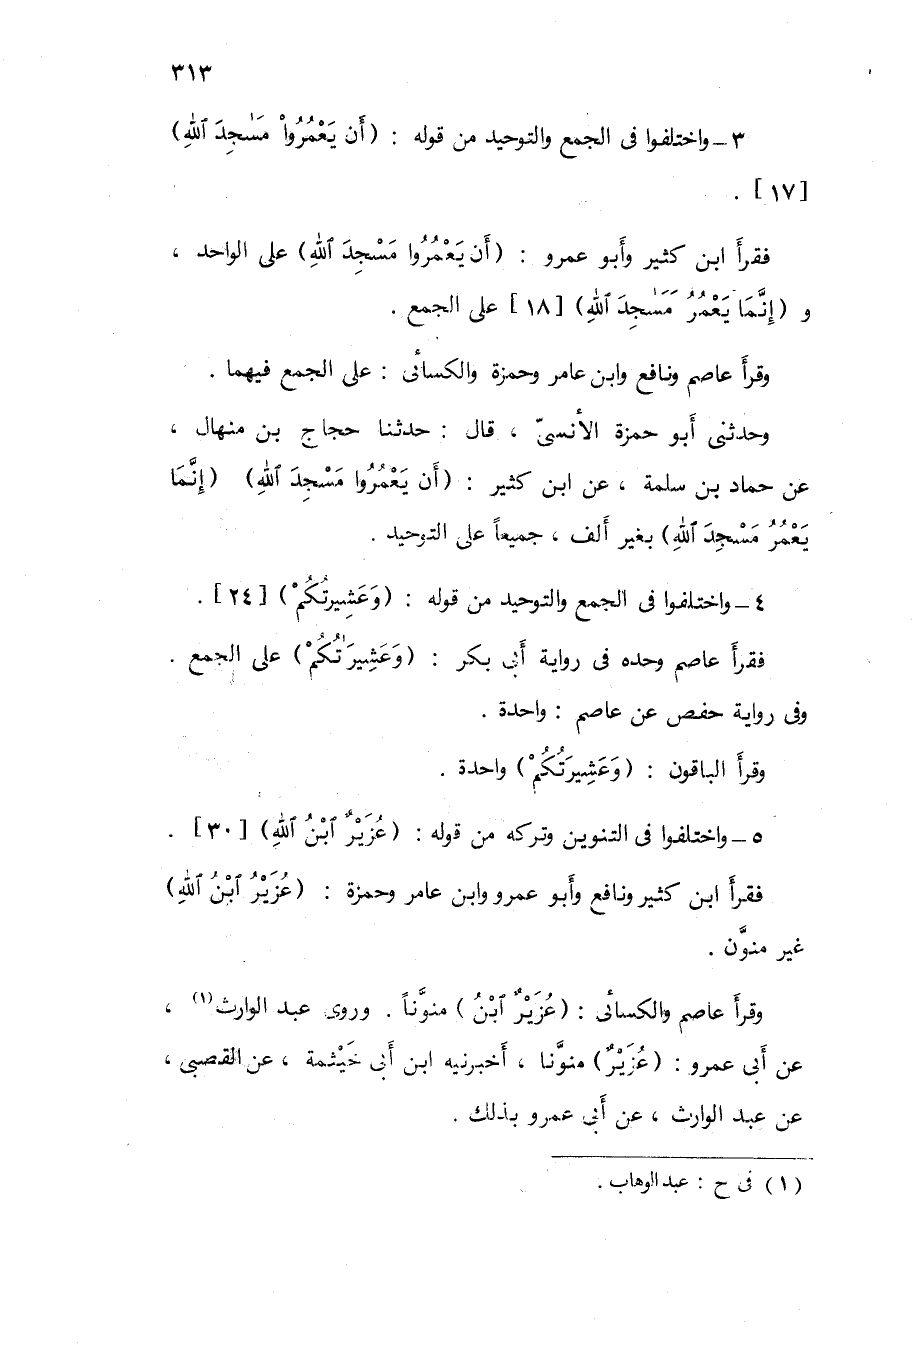 ٣١٣
٣ ــ واختلفوا فى الجمع والتوحيد من قوله : (أَن يَعْمُرُواْ مَسَٰجِدَ ٱللهِ)
[١٧] .
فقرأ ابن كثير وأبو عمرو : (أَن يَعْمُرُوا مَسْجِدَ ٱللهِ) على الواحد ،
و (إِنَّمَا يَعْمُرُ مَسَٰجِدَ ٱللهِ) [١٨] على الجمع .
وقرأ عاصم ونافع وابن عامر وحمزة والكسائى : على الجمع فيهما .
وحدثنى أبو حمزة الأنسىّ ، قال : حدثنا حجاج بن منهال ،
عن حماد بن سلمة ، عن ابن كثير : (أَن يَعْمُرُوا مَسْجِدَ ٱللهِ) (إِنَّمَا
يَعْمُرُ مَسْجِدَ ٱللهِ) بغير ألف ، جميعاً على التوحيد .
٤ ــ واختلفوا فى الجمع والتوحيد من قوله : (وَعَشِيرتُكُمْ) [٢٤] .
فقرأ عاصم وحده فى رواية أبى بكر : (وَعَشِيرَٰتُكُمْ) على الجمع .
وفى رواية حفص عن عاصم : واحدة .
وقرأ الباقون : (وَعَشِيرَتُكُمْ) واحدة .
٥ ــ واختلفوا فى التنوين وتركه من قوله : (عُزَيْرٌ ٱبْنُ ٱللهِ) [٣٠] .
فقرأ ابن كثير ونافع وأبو عمرو وابن عامر وحمزة : (عُزَيْرُ ٱبْنُ ٱللهِ)
غير منوَّن .
وقرأ عاصم والكسائى : (عُزَيْرٌ ٱبْنُ ) منوَّناً . وروى عبد الوارث(١) ،
عن أبى عمرو : (عُزَيْرٌ) منوَّنا ، أخبرنيه ابن أبى خَيْثمة ، عن القصبى ،
عن عبد الوارث ، عن أبى عمرو بذلك .
(١) فى ح : عبد الوهاب .